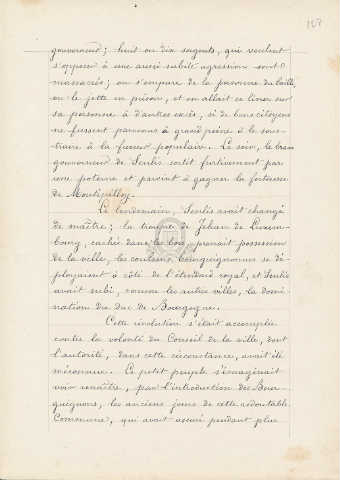 107
gouvernaud; huit ou dix sergents, qui veulent
s'opposer à une aussi subite agression sont
massacrés; on s'empare de la personne du bailli,
on le jette en prison, et on allait se livrer sur
sa personne à d'autres excès, si de bons citoyens
ne fussent parvenus à grand peine à le sous-
traire à la fureur populaire. Le soir, le brave
gouverneur de Senlis sortit furtivement par
une poterne et parvint à gagner la forteresse
de Montépilloy.
Le lendemain, Senlis avait changé
de maître; la troupe de Jehan de Luxem-
bourg, cachée dans le bois, prenait possession
de la ville, les couleurs bourguignonnes se dé-
ployaient à côté de l'étendard royal, et Senlis
avait subi, comme les autres villes, la domi-
nation du duc de Bourgogne.
Cette révolution s'était accomplie
contre la volonté du Conseil de la ville, dont
l'autorité, dans cette circonstance, avait été
méconnue. Ce petit peuple s'imaginait
voir renaître, par l'introduction des Bour-
guignons, les anciens jours de cette redoutable
Commune, qui avait assuré pendant plus